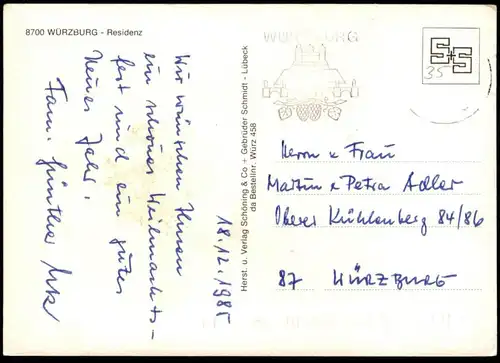 8700 WÜRZBURG - Residenz
18.12.1985
Wir wünschen Ihnen
ein schönes Weihnachts-
fest und ein gutes
Neues Jahr.
Fam. Günther
Herst. u. Verlag Schöning & Co + Gebrüder Schmidt - Lübeck
da Bestellnr. Würz 458
WÜRZBURG
S+S
35
Herrn u Frau
Martin u Petra Adler
Oberer Kühlenberg 84/86
87 WÜRZBURG